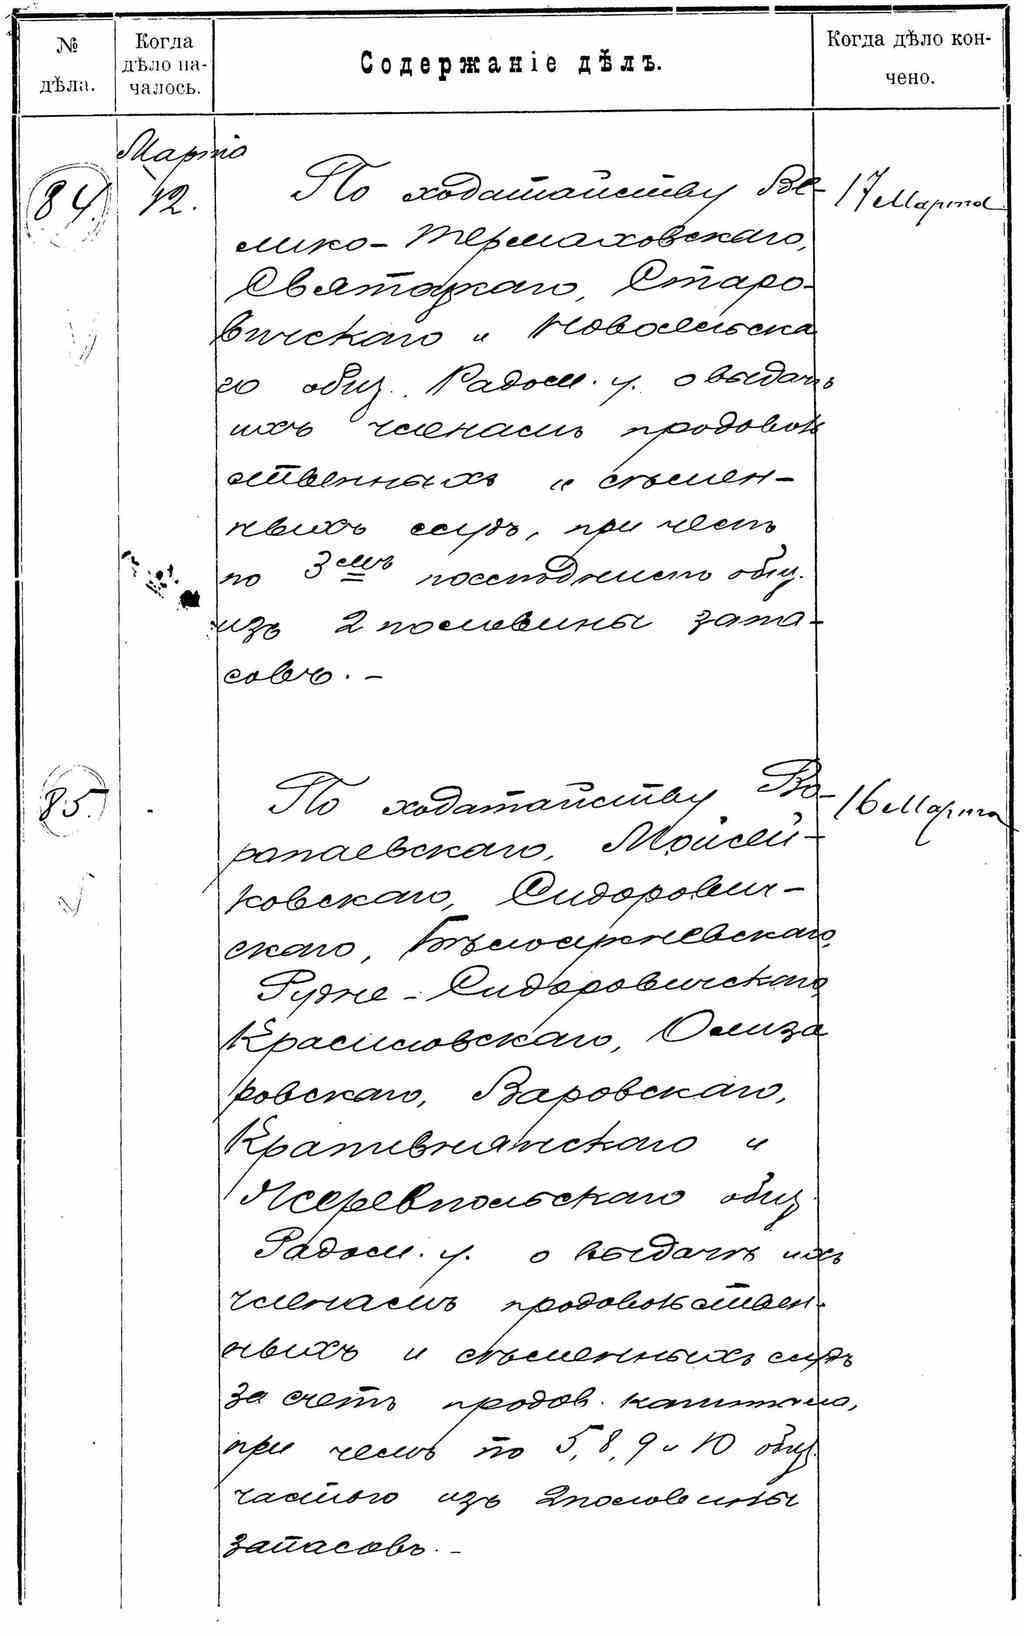 № дѣла.
Когда дѣло началось.
Содержаніе дѣлъ.
Когда дѣло кончено.
84.
Марта
12.
По ходатайству Ве-
лико-Термаховскаго,
Святоцкаго, Старо-
вичскаго и Новосельска
го общ. Радом. у. о выдачѣ
ихъ членамъ продоволь
ственныхъ и сѣмен-
ныхъ ссудъ, при чемъ
по 3емъ послѣднимъ общ.
изъ 2 половины запа-
совъ. -
17 Марта
85.
По ходатайству Во-
ропаевскаго, Мойсей-
ковскаго, Сидорович-
скаго, Бѣлосярневскаго,
Рудне-Сидоровичскаго,
Красиловскаго, Олиза
ровскаго, Варовскаго,
Крапивнянскаго и
Ксаверпольскаго общ.
Радом. у. о выдачѣ ихъ
членамъ продовольствен-
ныхъ и сѣменныхъ ссудъ
за счетъ продов. капитала,
при чемъ по 5, 8, 9 и 10 общ.
частью изъ 2 половины
запасовъ. -
16 Марта